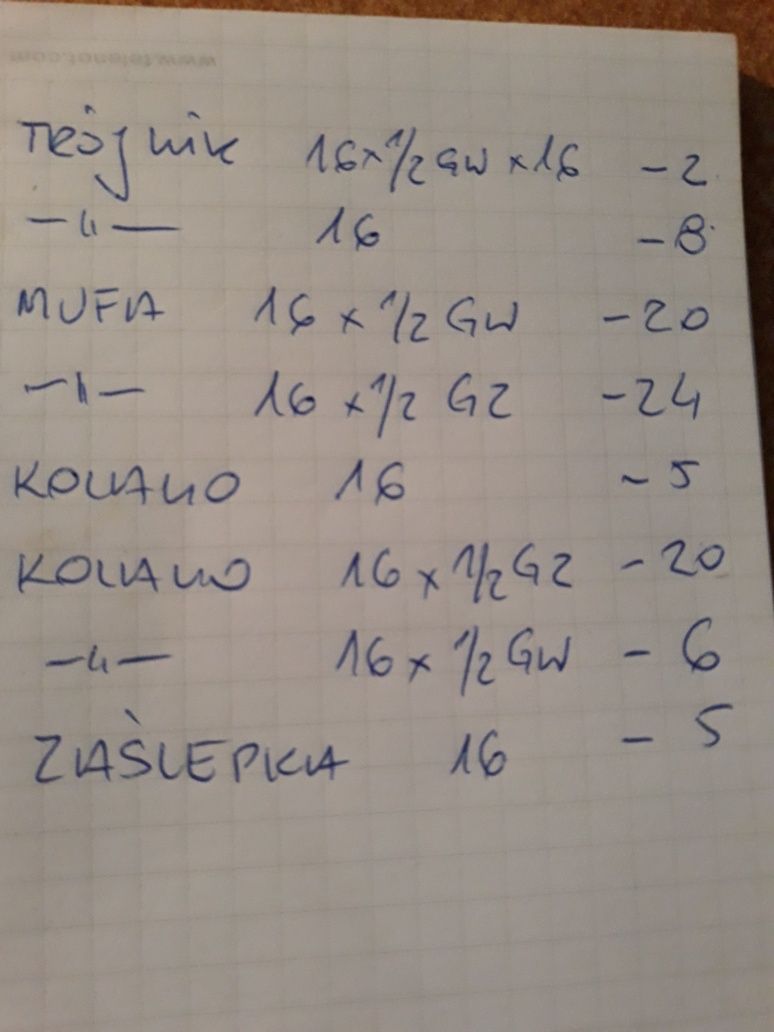 www.telenot.com
TRÓJNIK 16x1/2 GW x16 -2
-〃- 16 -8
MUFA 16 x 1/2 GW -20
-〃- 16 x 1/2 GZ -24
KOLANO 16 - 5
KOLANO 16 x 1/2 GZ - 20
-〃- 16 x 1/2 GW - 6
ZAŚLEPKA 16 - 5